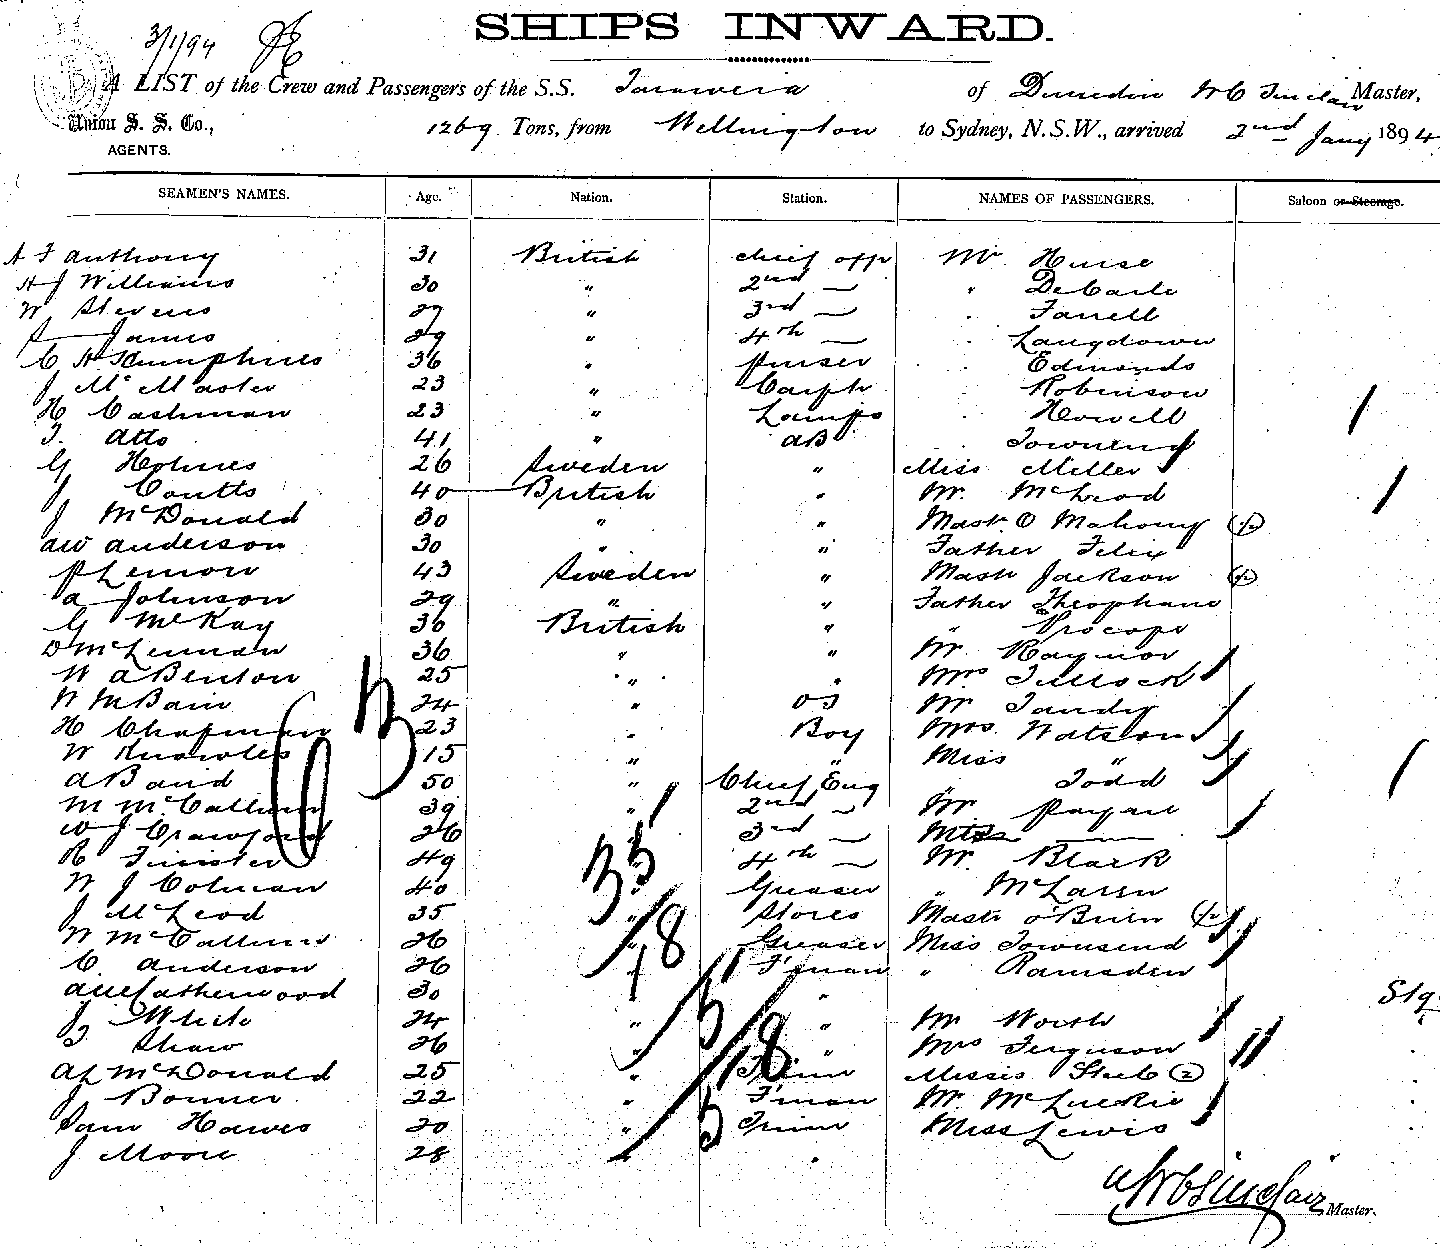 SHIPS INWARD.
3/1/94
A LIST of the Crew and Passengers of the S.S. Tarawera of Dunedin W C Sinclair Master,
Union S. S. Co., 1269 Tons, from Wellington to Sydney, N.S.W., arrived 2nd Jany 1894
AGENTS.
SEAMEN'S NAMES. Age. Nation. Station. NAMES OF PASSENGERS. Saloon or Steerage.
A F Anthony 31 British Chief Offr Mr Huise
H J Williams 30 " 2nd — " DeCarle
W Stevens 27 " 3rd — Farrell
James 29 " 4th — Langdown
C H Humphries 36 " Purser Edmonds
J McMaster 23 " Carptr Robinson
H Cashman 23 " Lamps Howell
T. Atto 41 " AB Townend
G Holmes 26 Sweden " Miss Miller
J Coutts 40 British " Mr. McLeod
J McDonald 30 " " Mast. O Mahony (½)
AW Anderson 30 " " Father Felix
P Lemon 43 Sweden " Mastr Jackson (½)
A Johnson 29 " " Father Theophane
G McKay 36 British " " Procope
D McLennan 36 " " Mr. Raynor
W A Benton 25 " " Mrs Tullock
W McBain 24 " OS Mr Tandy
H Chapman 23 " Boy Mrs. Watson
W Knowles 15 " " Miss "
A Baird 50 " Chief Eng Todd
M McCallum 39 " 2nd — Mr
W J Crawford 26 3rd —
R 49 4th — Mr. Black
W J Colman 40 Greaser " McLaren
J McLeod 35 " Stores Mastr O'Brien (½)
W McCallum 26 " Greaser Miss Townsend
C. Anderson 26 F'man " Ramsden
Catherwood 30 " Stg
J White 24 " " Mr Worth
T Shaw 26 " " Mrs Ferguson
A L McDonald 25 " Trimr Misses Steel (2)
J Bonner 22 " F'man Mr. McLuckie
Sam Hawes 20 " Trimr Miss Lewis
J Moore 28 "
35
18
5
18
5
W C Sinclair Master.